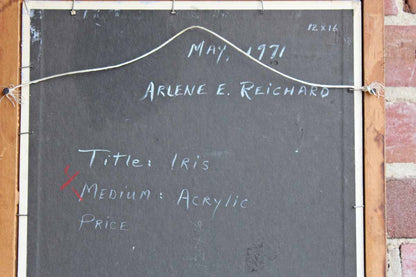 12 x 16
May, 1971
ARLENE E. REICHARD
Title: IRIS
X MEDIUM: ACRYLIC
PRICE